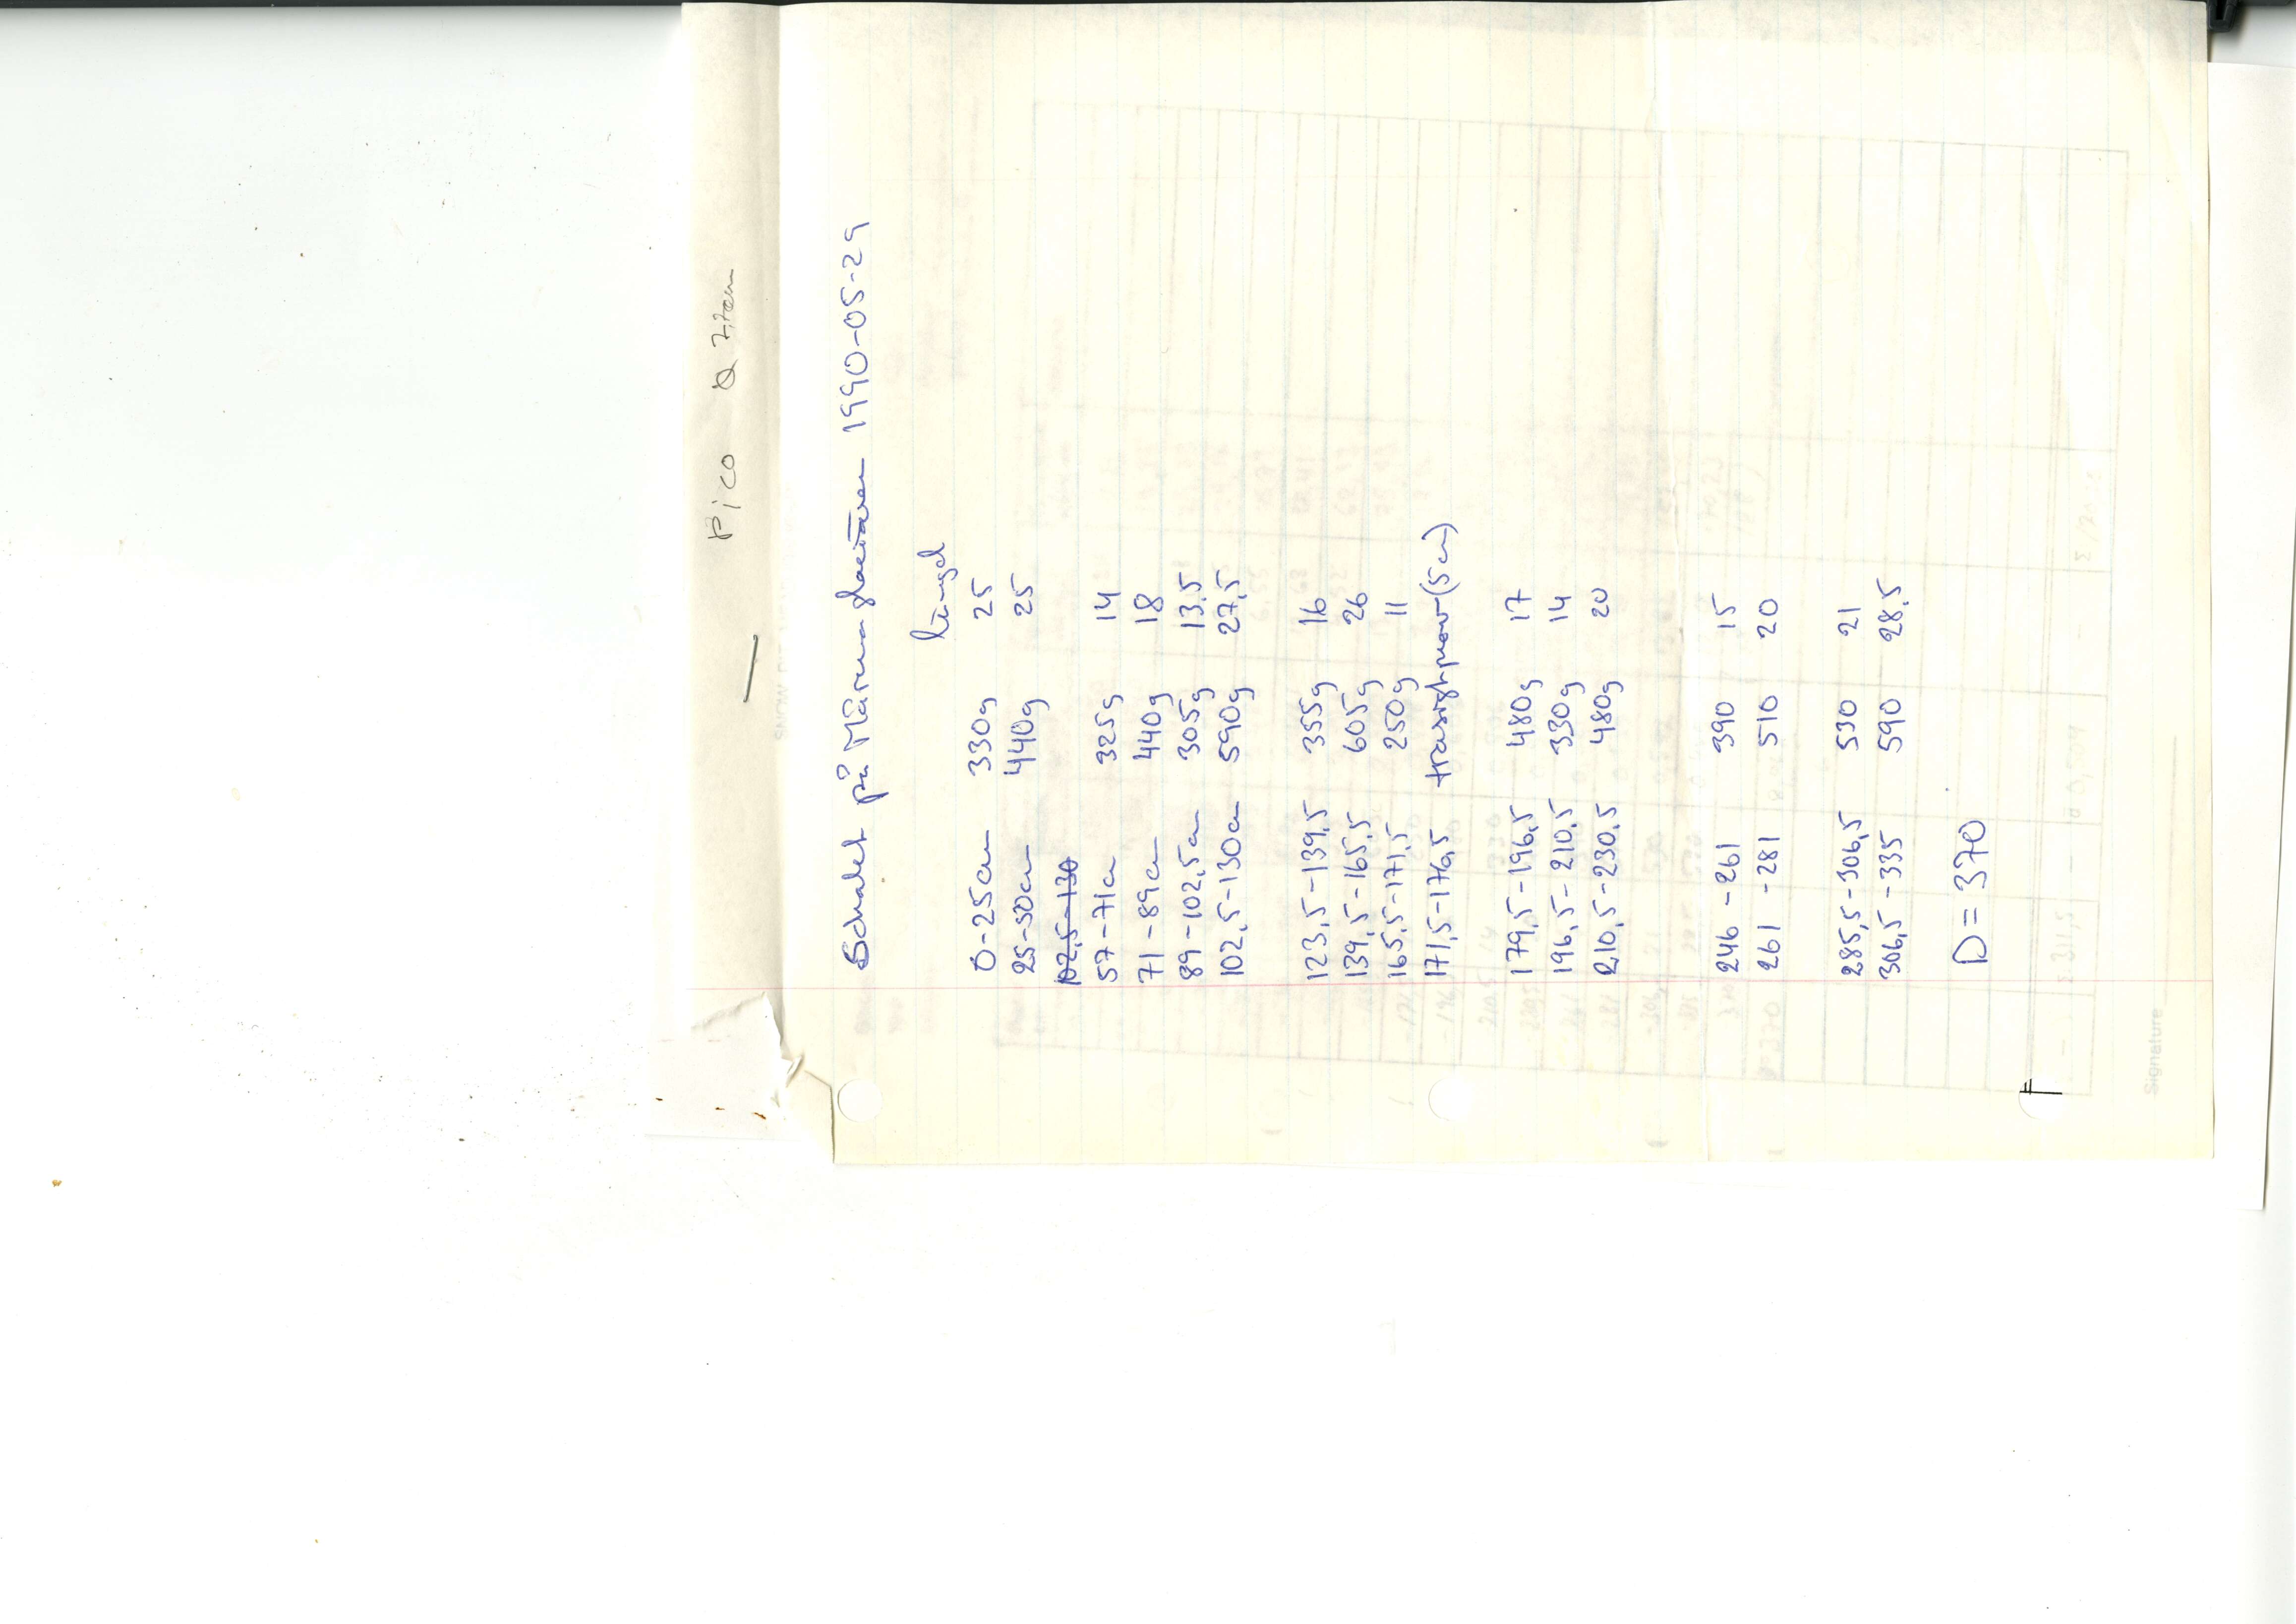 Pico Ø 7,7cm
Schaktet på Mårmaglaciären 1990-05-29
längd
0-25cm 330g 25
25-50cm 440g 25
102,5-130
57-71cm 325g 14
71-89cm 440g 18
89-102,5cm 305g 13,5
102,5-130cm 590g 27,5
123,5-139,5 355g 16
139,5-165,5 605g 26
165,5-171,5 250g 11
171,5-176,5 trasigt prov (5cm)
179,5-196,5 480g 17
196,5-210,5 330g 14
210,5-230,5 480g 20
246-261 390 15
261-281 510 20
285,5-306,5 530 21
306,5-335 590 28,5
D=370
Signature